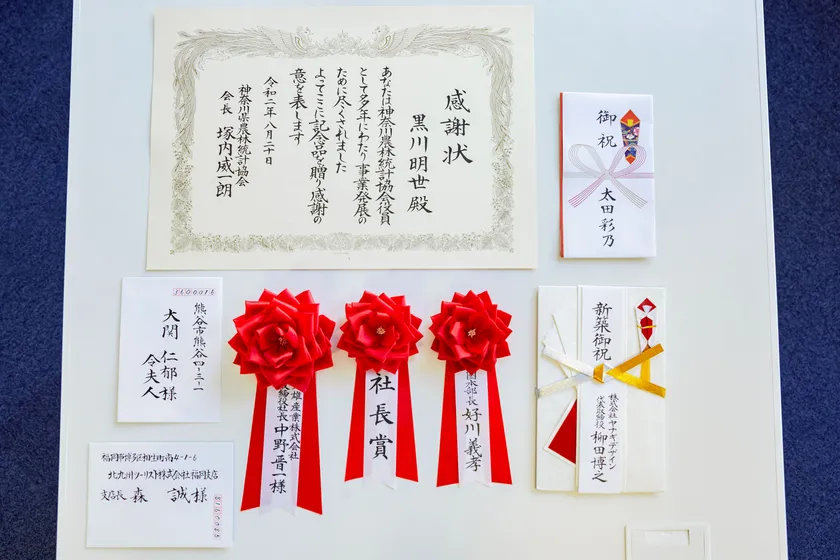 感謝状
黒川明世殿
あなたは神奈川農林統計協会役員
として多年にわたり事業発展の
ために尽くされました
よってここに記念品を贈り感謝の
意を表します
令和二年八月二十日
神奈川県農林統計協会
会長 塚内威一朗
御祝
太田彩乃
熊谷市熊谷四-三-一
大関 仁郁様
令夫人
雄産業株式会社
締役社長 中野晋一様
社長賞
部長 好川義孝
新築御祝
株式会社ヤナキデザイン
代表取締役 柳田博之
北九州ツーリスト株式会社福岡支店
支店長 森 誠様